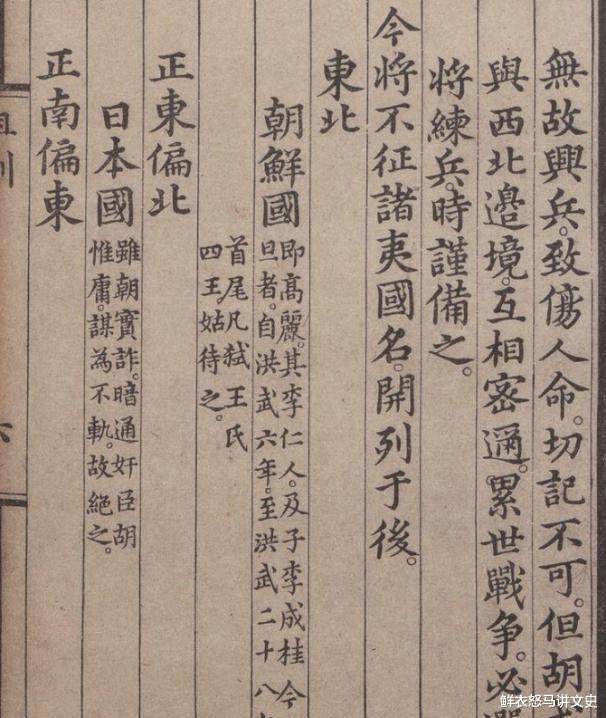 無故興兵。致傷人命。切記不可。但胡
與西北邊境。互相密邇。累世戰爭。必
將練兵。時謹備之。
今將不征諸夷國名。開列于後。
東北
朝鮮國
即高麗。其李仁人。及子李成桂 今
旦者。自洪武六年。至洪武二十八
首尾凡弑王氏
四王姑待之。
正東偏北
日本國
雖朝實詐。暗通奸臣胡
惟庸。謀為不軌。故絕之。
正南偏東
鲜衣怒马讲文史